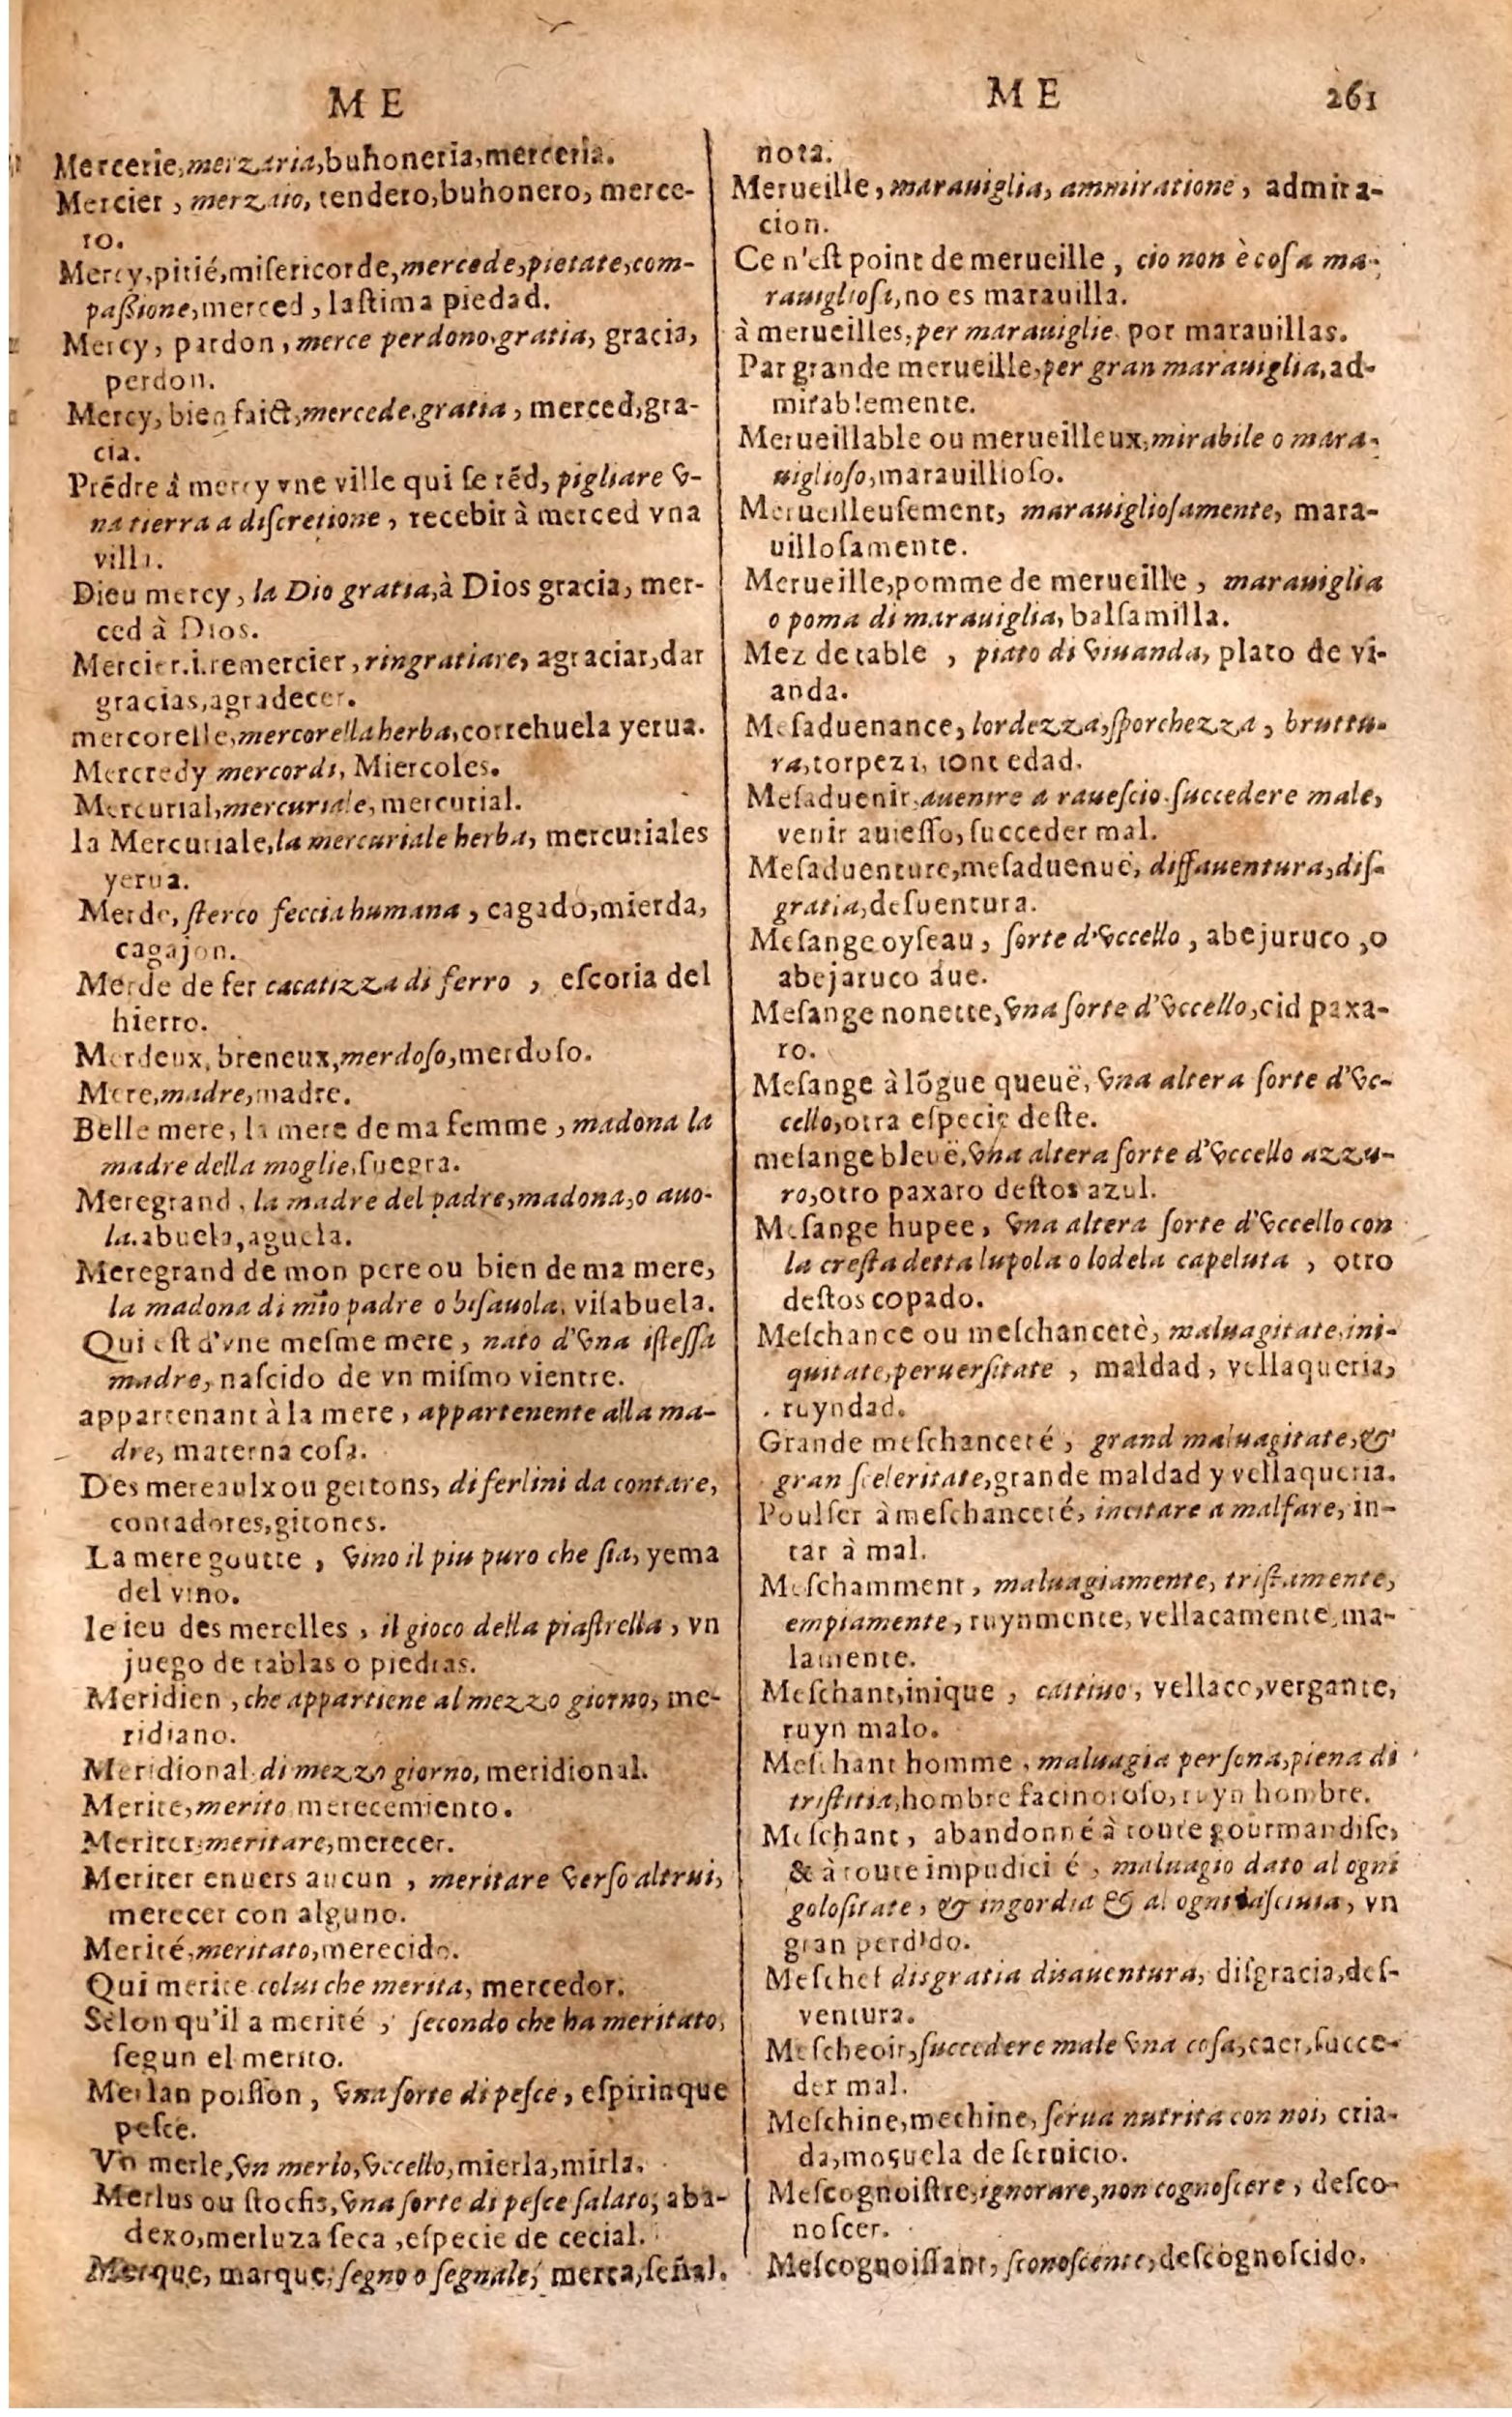 M E
Mercerie, merzaria, buhoneria, merceria.
Mercier, merzaio, tendero, buhonero, merce-
ro.
Mercy, pitié, misericorde, mercede, pietate, com-
paßione, merced, lastima piedad.
Mercy, pardon, merce perdono, gratia, gracia,
perdon.
Mercy, bien faict, mercede, gratia, merced, gra-
cia.
Prẽdre à mercy vne ville qui se rẽd, pigliare v-
na tierra a discretione, recebir à merced vna
villa.
Dieu mercy, la Dio gratia, à Dios gracia, mer-
ced à Dios.
Mercier.i.remercier, ringratiare, agraciar, dar
gracias, agradecer.
mercorelle, mercorella herba, correhuela yerua.
Mercredy mercordi, Miercoles.
Mercurial, mercuriale, mercurial.
la Mercuriale, la mercuriale herba, mercuriales
yerua.
Merde, sterco feccia humana, cagado, mierda,
cagajon.
Merde de fer cacatizza di ferro, escoria del
hierro.
Merdeux, breneux, merdoso, merdoso.
Mere, madre, madre.
Belle mere, la mere de ma femme, madona la
madre della moglie, suegra.
Meregrand, la madre del padre, madona, o auo-
la. abuela, aguela.
Meregrand de mon pere ou bien de ma mere,
la madona di mio padre o bisauola, visabuela.
Qui est d'vne mesme mere, nato d'vna istessa
madre, nascido de vn mismo vientre.
appartenant à la mere, appartenente alla ma-
dre, materna cosa.
Des mereaulx ou gettons, di ferlini da contare,
contadores, gitones.
La mere goutte, vino il piu puro che sia, yema
del vino.
le ieu des merelles, il gioco della piastrella, vn
juego de tablas o piedras.
Meridien, che appartiene al mezzo giorno, me-
ridiano.
Meridional di mezzo giorno, meridional.
Merite, merito merecemiento.
Meriter, meritare, merecer.
Meriter enuers aucun, meritare verso altrui,
merecer con alguno.
Merité, meritato, merecido.
Qui merite colui che merita, mercedor.
Selon qu'il a merité, secondo che ha meritato,
segun el merito.
Merlan poisson, vna sorte di pesce, espirinque
pesce.
Vn merle, vn merlo, vccello, mierla, mirla.
Merlus ou stocfis, vna sorte di pesce salato, aba-
dexo, merluza seca, especie de cecial.
Merque, marque, segno o segnale, merca, señal.
M E 261
nota.
Merueille, marauiglia, ammiratione, admira-
cion.
Ce n'est point de merueille, cio non è cosa ma-
rauigliosa, no es marauilla.
à merueilles, per marauiglie, por marauillas.
Par grande merueille, per gran marauiglia, ad-
mirablemente.
Merueillable ou merueilleux, mirabile o mara-
uiglioso, marauillioso.
Merueilleusement, marauigliosamente, mara-
uillosamente.
Merueille, pomme de merueille, marauiglia
o poma di marauiglia, balsamilla.
Mez de table, piato di viuanda, plato de vi-
anda.
Mesaduenance, lordezza, sporchezza, bruttu-
ra, torpeza, tont edad.
Mesaduenir, auenire a rauescio. succedere male,
venir auiesso, succeder mal.
Mesaduenture, mesaduenuë, dissauentura, dis-
gratia, desuentura.
Mesange oyseau, sorte d'vccello, abejuruco, o
abejaruco aue.
Mesange nonette, vna sorte d'vccello, cid paxa-
ro.
Mesange à lõgue queuë, vna altera sorte d'vc-
cello, otra especie deste.
mesange bleuë, vna altera sorte d'vccello azzu-
ro, otro paxaro destos azul.
Mesange hupee, vna altera sorte d'vccello con
la cresta detta lupola o lodela capeluta, otro
destos copado.
Meschance ou meschanceté, maluagitate, ini-
quitate, peruersitate, maldad, vellaqueria,
ruyndad.
Grande meschanceté, grand maluagitate, &
gran sceleritate, grande maldad y vellaqueria.
Poulser à meschanceté, incitare a malfare, in-
tar à mal.
Meschamment, maluagiamente, tristamente,
empiamente, ruynmente, vellacamente, ma-
lamente.
Meschant, inique, cattiuo, vellaco, vergante,
ruyn malo.
Meschant homme, maluagia persona, piena di
tristitia, hombre facinoroso, ruyn hombre.
Meschant, abandonné à toute gourmandise,
& à toute impudici é, maluagio dato al ogni
golositate, & ingordia & al ogni lasciuia, vn
gran perdido.
Meschef disgratia disauentura, disgracia, des-
ventura.
Mescheoir, succedere male vna cosa, caer, succe-
der mal.
Meschine, mechine, serua nutrita con noi, cria-
da, moçuela de seruicio.
Mescognoistre, ignorare, non cognoscere, desco-
noscer.
Mescognoissant, sconoscente, descognoscido.